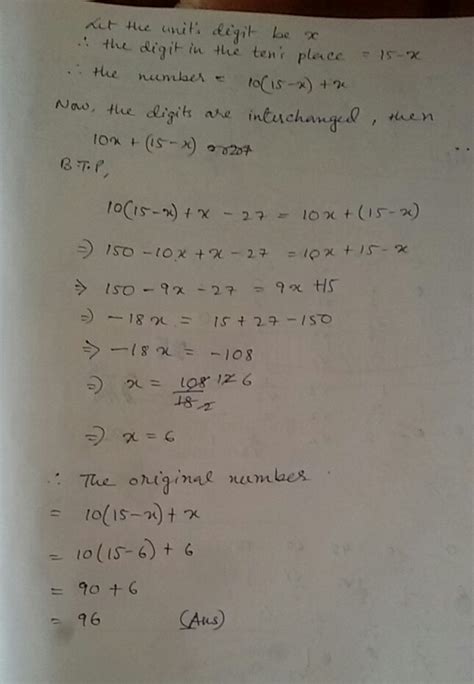 Let the unit's digit be x
∴ the digit in the ten's place = 15-x
∴ the number = 10(15-x) + x
Now, the digits are interchanged, then
10x + (15-x)
B.T.P,
10(15-x) + x - 27 = 10x + (15-x)
⇒ 150 - 10x + x - 27 = 10x + 15 - x
⇒ 150 - 9x - 27 = 9x + 15
⇒ -18x = 15 + 27 - 150
⇒ -18x = -108
⇒ x = 108 12 6
18 2
⇒ x = 6
∴ The original number
= 10(15-x) + x
= 10(15-6) + 6
= 90 + 6
= 96 (Ans)